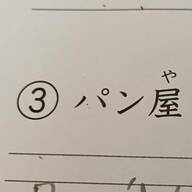 ③ パン屋
や